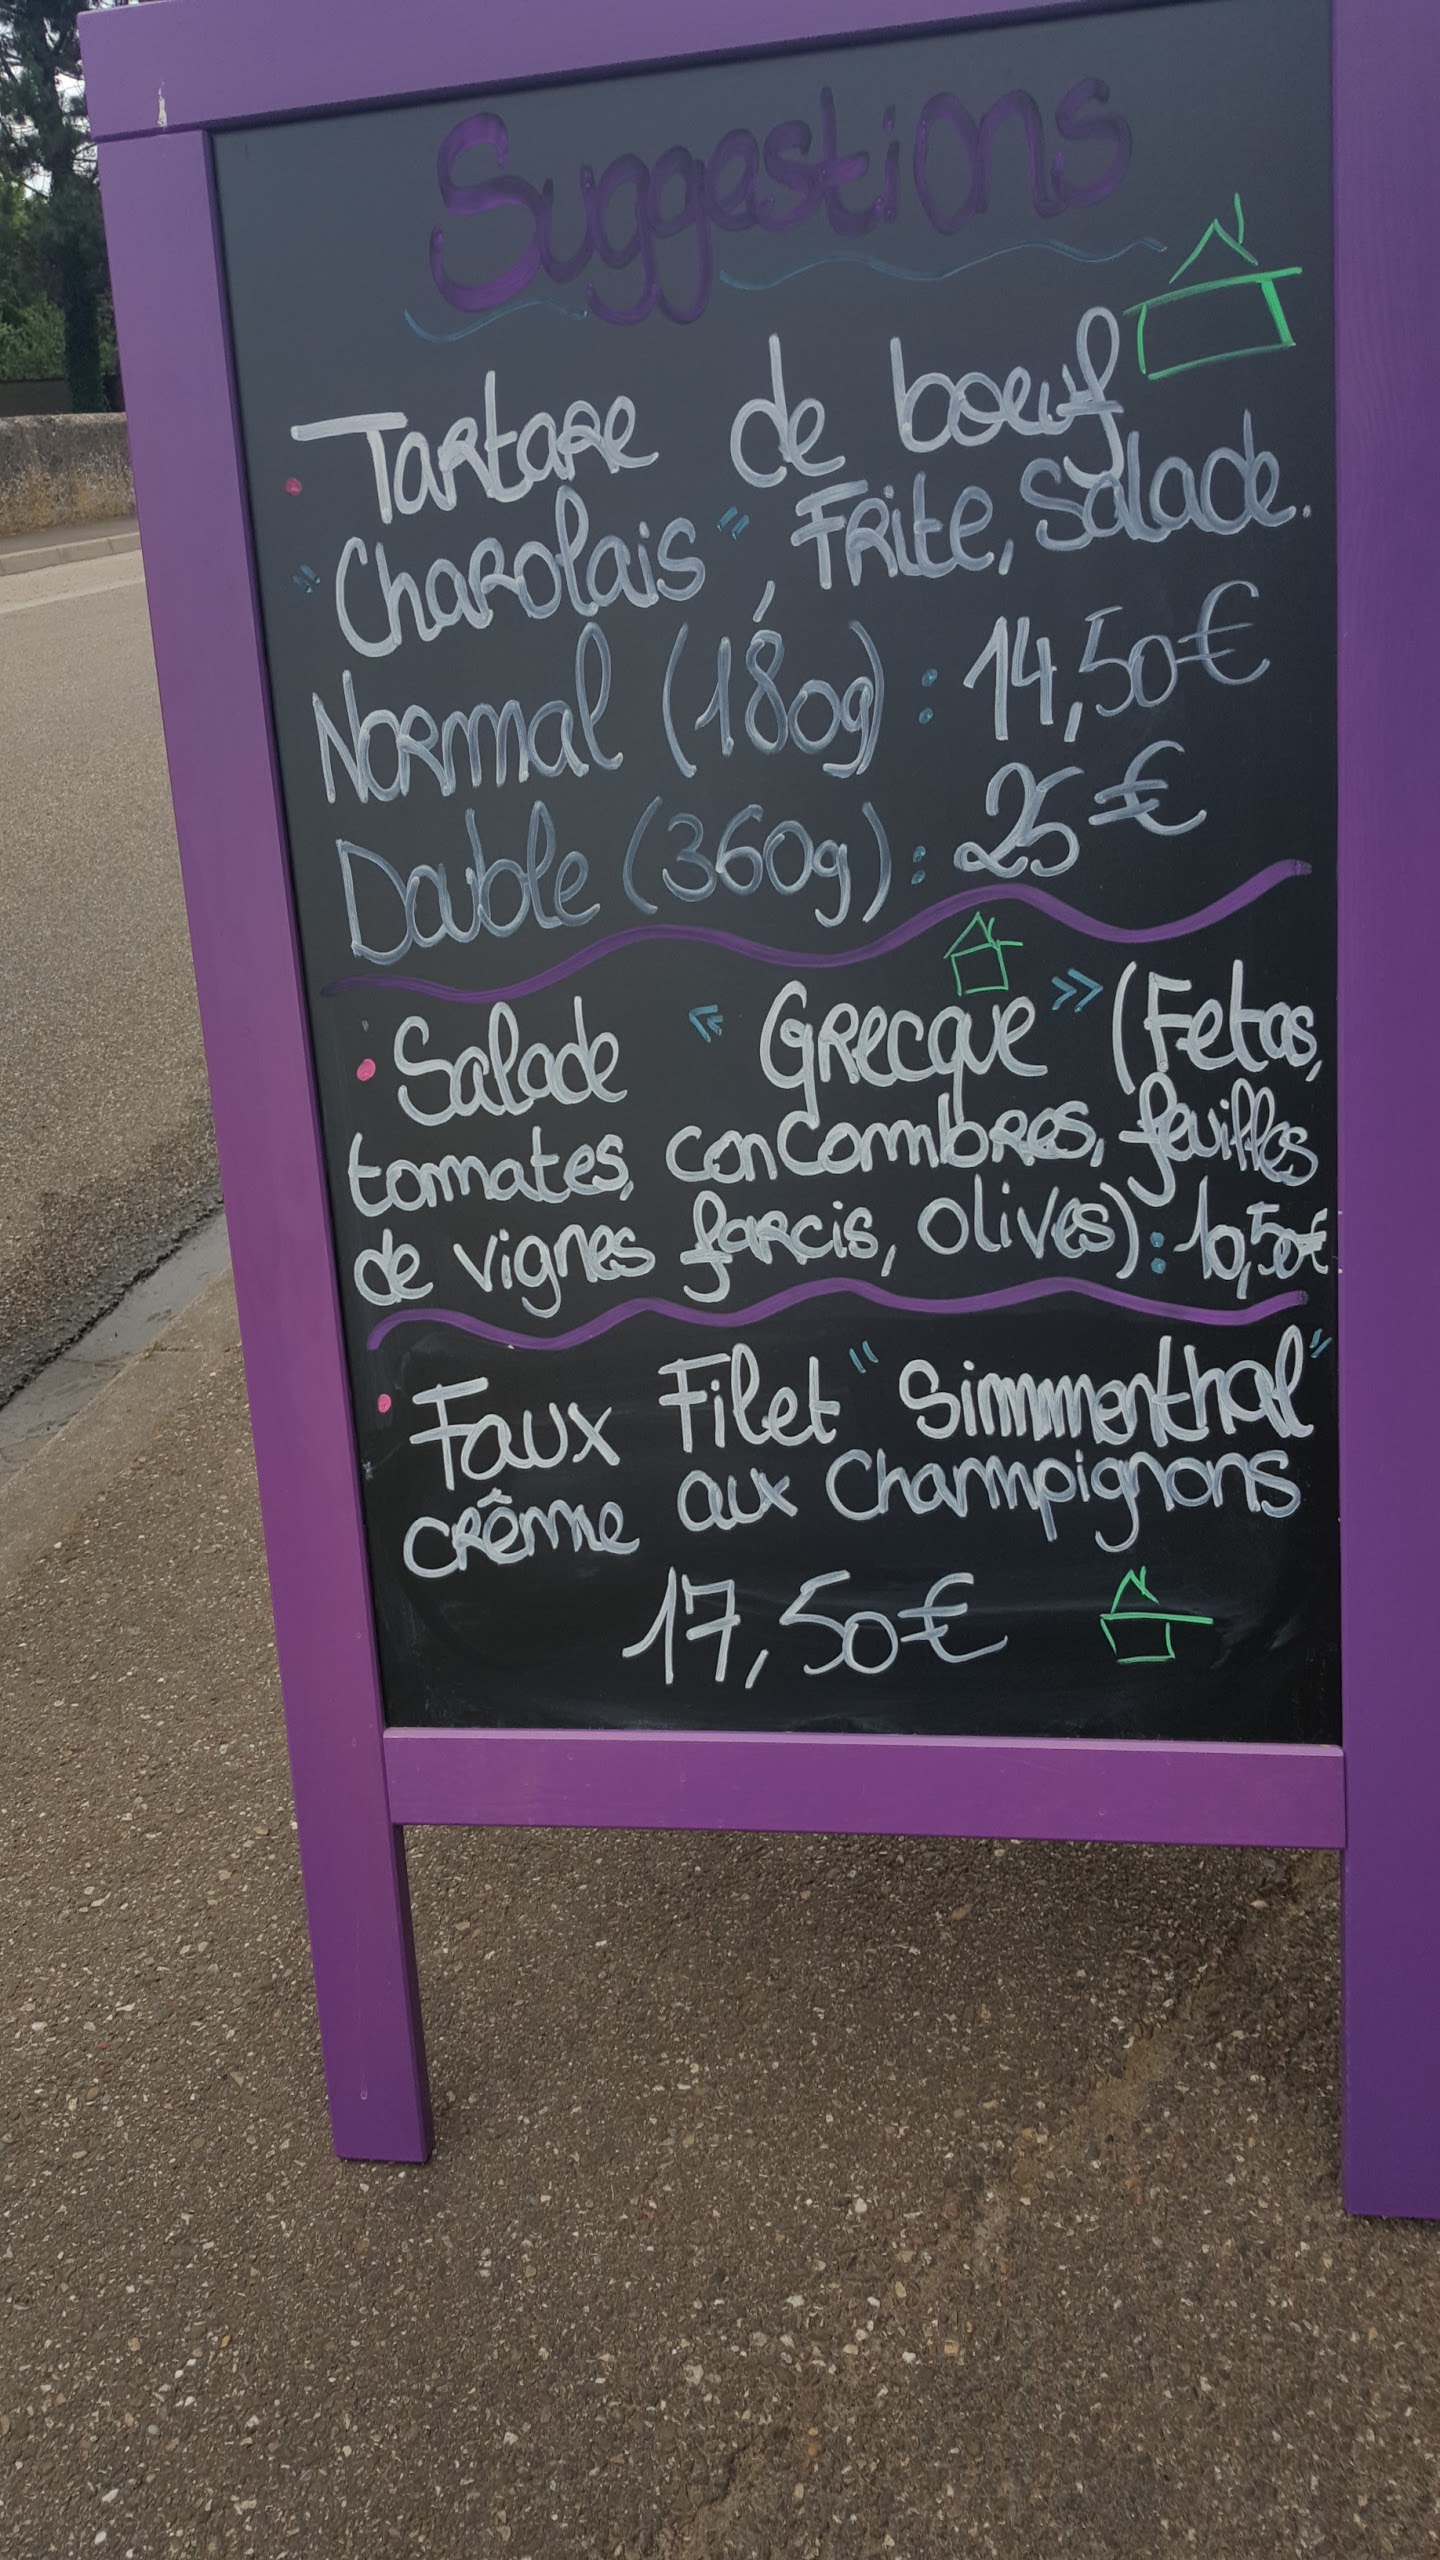 Suggestions
• Tartare de bœuf
"Charolais", Frite, Salade.
Normal (180g) : 14,50€
Double (360g) : 25€
• Salade « Grecque » (Fetas,
tomates, concombres, feuilles
de vignes farcis, olives) : 10,50€
• Faux Filet "Simmmenthal"
crême aux Champignons
17,50€